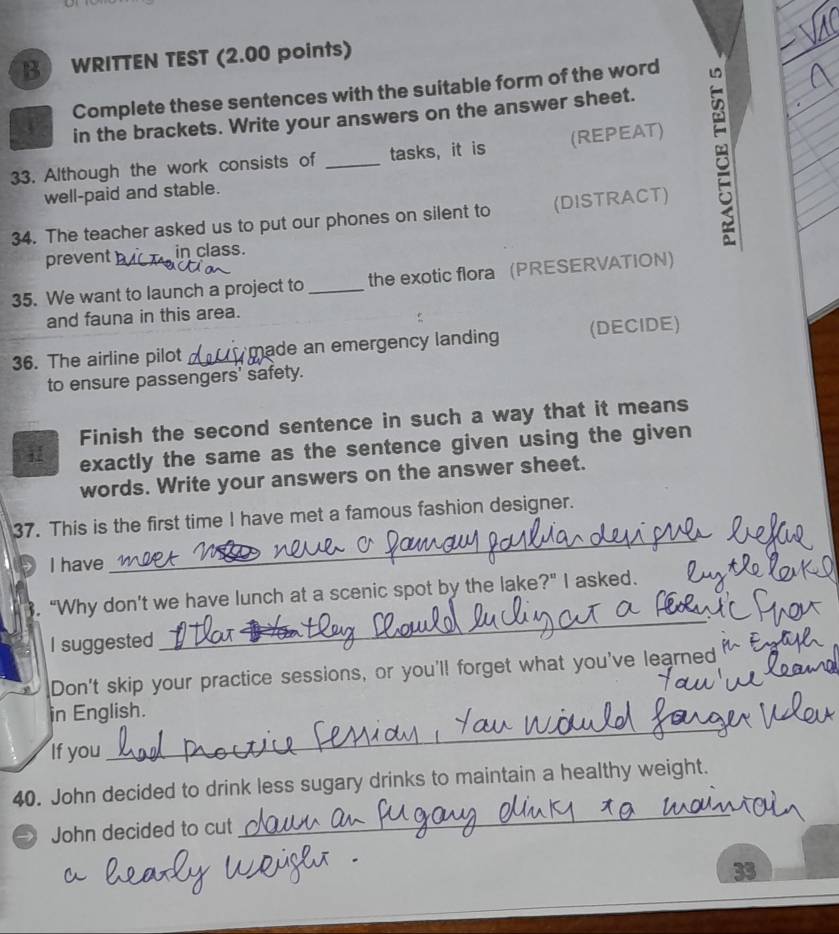 B WRITTEN TEST (2.00 points)
I Complete these sentences with the suitable form of the word
in the brackets. Write your answers on the answer sheet.
33. Although the work consists of ______ tasks, it is (REPEAT)
well-paid and stable.
34. The teacher asked us to put our phones on silent to (DISTRACT)
prevent in class.
35. We want to launch a project to ______ the exotic flora (PRESERVATION)
and fauna in this area.
36. The airline pilot made an emergency landing (DECIDE)
to ensure passengers' safety.
II Finish the second sentence in such a way that it means
exactly the same as the sentence given using the given
words. Write your answers on the answer sheet.
37. This is the first time I have met a famous fashion designer.
I have meet never a famous fashion designer before
"Why don't we have lunch at a scenic spot by the lake?" I asked. by the lake
I suggested that they should at a scenic spot
Don't skip your practice sessions, or you'll forget what you've learned in English
in English. You've learned
If you had practice session, you would forget what
40. John decided to drink less sugary drinks to maintain a healthy weight.
John decided to cut down an sugary dinks to maintain
a hearly weight.
33
PRACTICE TEST 5